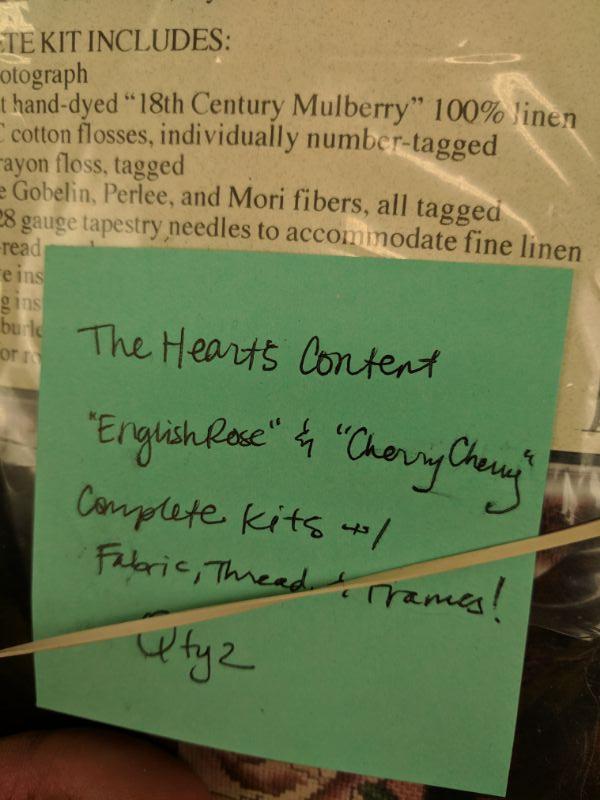 TE KIT INCLUDES:
otograph
t hand-dyed “18th Century Mulberry” 100% linen
C cotton flosses, individually number-tagged
rayon floss, tagged
e Gobelin, Perlee, and Mori fibers, all tagged
28 gauge tapestry needles to accommodate fine linen
-read
e ins
g ins
burle
or ro
The Hearts Content
"English Rose" & "Cherry Cherry"
Complete Kits w/
Fabric, Thread & Frames!
Qty 2